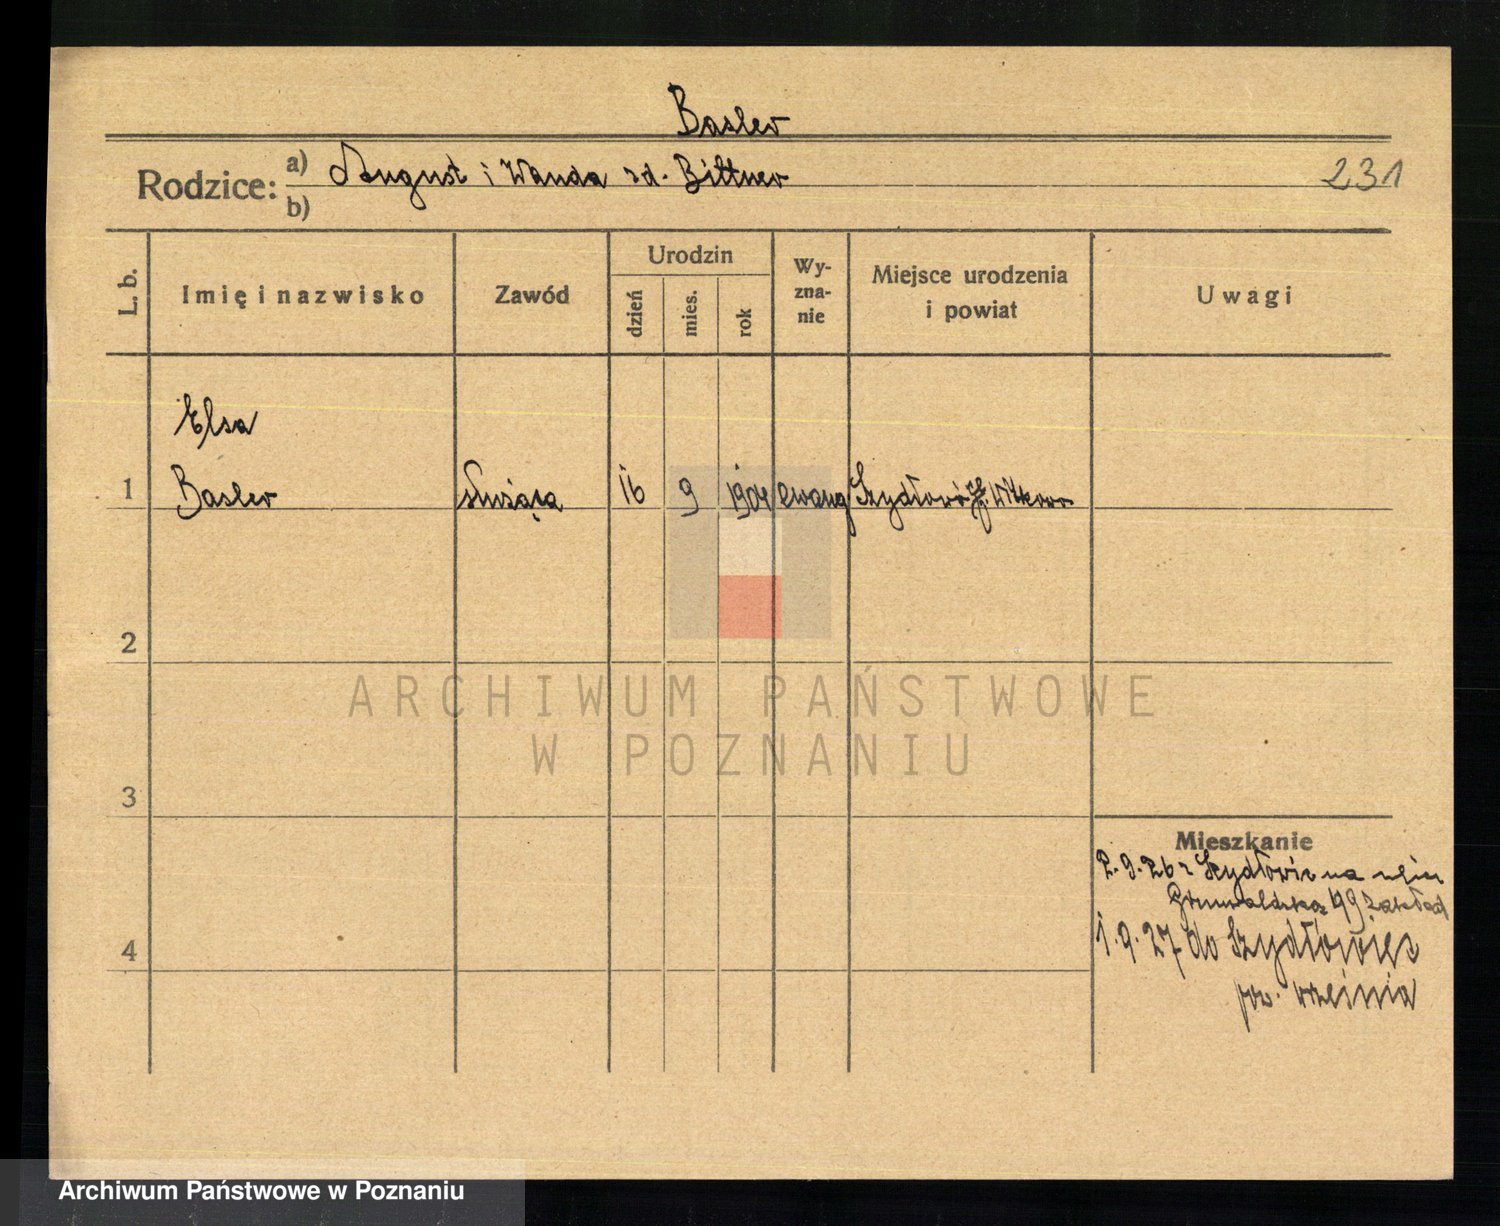 Basler
Rodzice: a) August i Wanda rd. Bittner
231
b)
L. b.
Imię i nazwisko
Zawód
Urodzin
dzień
mies.
rok
Wy-
zna-
nie
Miejsce urodzenia
i powiat
Uwagi
Elsa
1 Basler służąca 16 9 1904 ewang Szydłowo Witkowo
2
ARCHIWUM PAŃSTWOWE
W POZNANIU
3
Mieszkanie
2.9.26 z Szydłowic na
Grunwaldzka 49 zakład
4
1.9.27 do Szydłowiec
pow. września
Archiwum Państwowe w Poznaniu